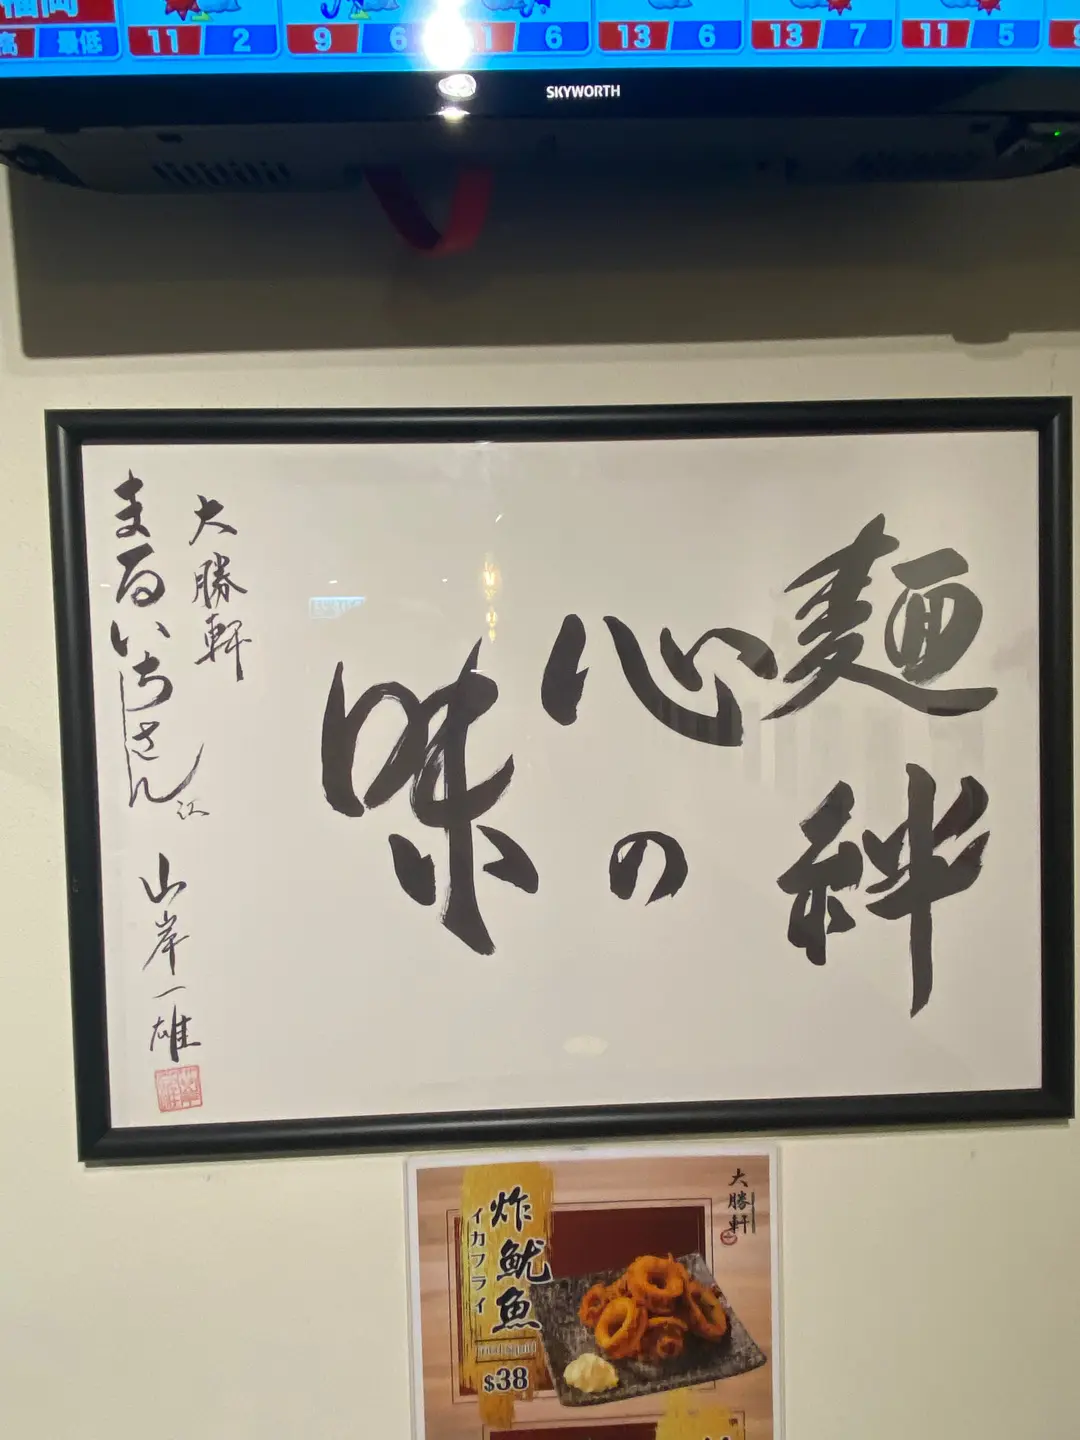 福岡
高 最低
11 2
9 6
11 6
13 6
13 7
11 5
SKYWORTH
麺絆
心の
味
大勝軒
まるいちさん江
山岸一雄
大勝軒
炸魷魚
イカフライ
Fried Squid
$38